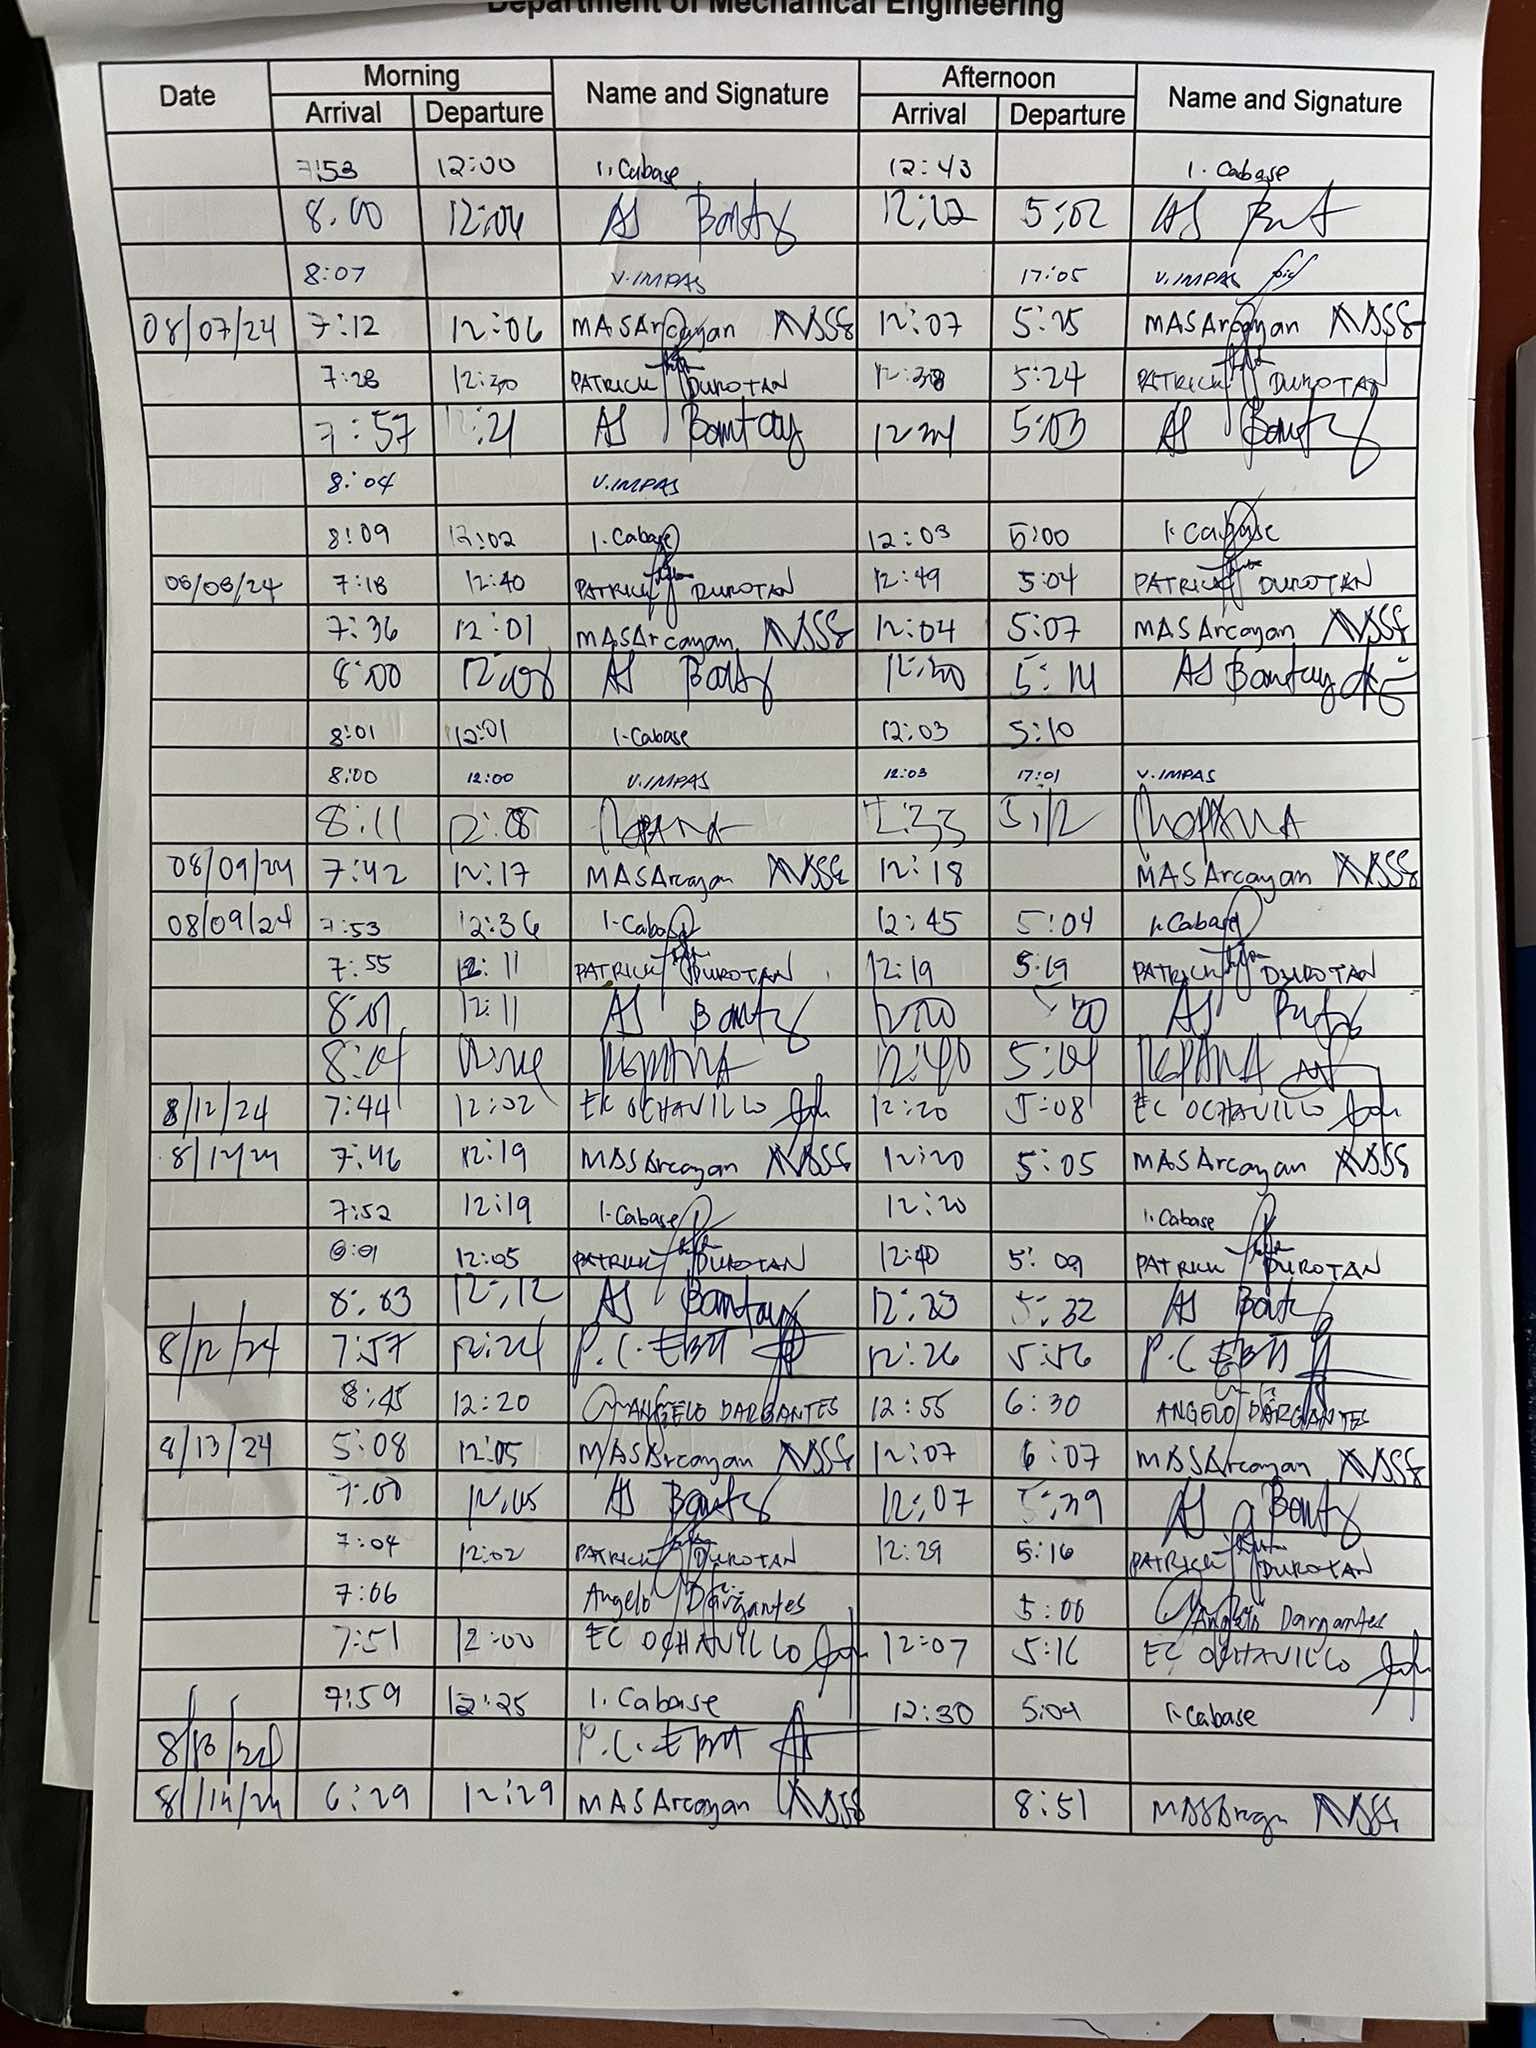 Department of Mechanical Engineering
Date Morning Name and Signature Afternoon Name and Signature
Arrival Departure Arrival Departure
7:53 12:00 1. Cabase 12:43 1. Cabase
8:00 12:04 AS 5:02 AS
8:07 V. IMPAS 17:05 V. IMPAS
08/07/24 7:12 12:06 MASArcayan 12:07 5:25 MASArcayan
7:28 12:30 PATRICK DUROTAN 12:38 5:24 PATRICK DUROTAN
7:57 :21 AS Bantay 5:03 AS Bantay
8:04 V. IMPAS
8:09 12:02 1. Cabase 12:03 5:00 1. Cabase
08/08/24 7:18 12:40 PATRICK DUROTAN 12:49 5:04 PATRICK DUROTAN
7:36 12:01 MASArcayan 12:04 5:07 MASArcayan
8:00 12:08 AS 12:30 5:14 AS Bantay
8:01 12:01 1. Cabase 12:03 5:10
8:00 12:00 V. IMPAS 12:03 17:01 V. IMPAS
8:11 12:08 5:12
08/09/24 7:42 12:17 MASArcayan 12:18 MASArcayan
08/09/24 7:53 12:36 1. Cabase 12:45 5:04 1. Cabase
7:55 12:11 PATRICK DUROTAN 12:19 5:19 PATRICK DUROTAN
8:01 12:11 AS AS
8:04 12:40 5:04
8/12/24 7:44 12:02 EC OCHAVILLO 12:20 5:08 EC OCHAVILLO
8/12/24 7:46 12:19 MASArcayan 12:20 5:05 MASArcayan
7:52 12:19 1. Cabase 12:20 1. Cabase
8:01 12:05 PATRICK DUROTAN 12:40 5:09 PATRICK DUROTAN
8:03 12:12 AS Bantay 12:23 5:32 AS
8/12/24 7:57 12:24 P.C. 12:26 5:56 P.C.
8:45 12:20 ANGELO DARGANTES 12:55 6:30 ANGELO DARGANTES
8/13/24 5:08 12:05 MASArcayan 12:07 6:07 MASArcayan
7:00 12:05 AS 12:07 5:39 AS
7:04 12:02 PATRICK DUROTAN 12:29 5:16 PATRICK DUROTAN
7:06 Angelo Dargantes 5:00 Angelo Dargantes
7:51 12:00 EC OCHAVILLO 12:07 5:16 EC OCHAVILLO
7:59 12:25 1. Cabase 12:30 5:04 1. Cabase
8/13/24 P.C.
8/14/24 6:29 12:29 MASArcayan 8:51